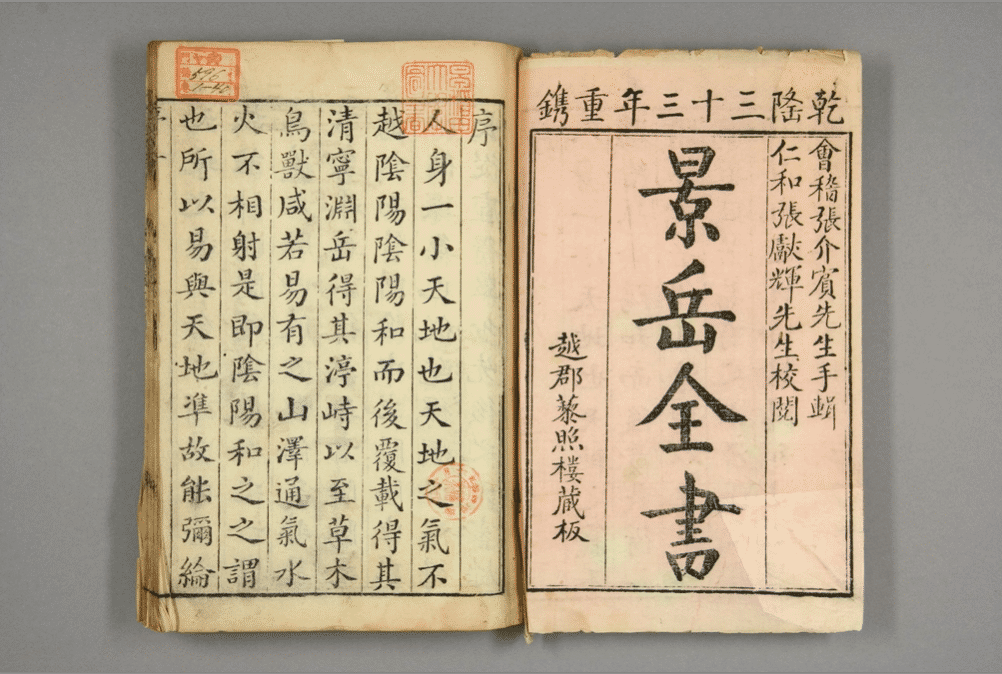 乾隆三十三年重鐫
會稽張介賓先生手輯
仁和張獻輝先生校閱
景岳全書
越郡藜照樓藏板
序
人身一小天地也天地之氣不
越陰陽陰陽和而後覆載得其
清寧淵岳得其渟峙以至草木
鳥獸咸若易有之山澤通氣水
火不相射是即陰陽和之之謂
也所以易與天地準故能彌綸
596
1-40